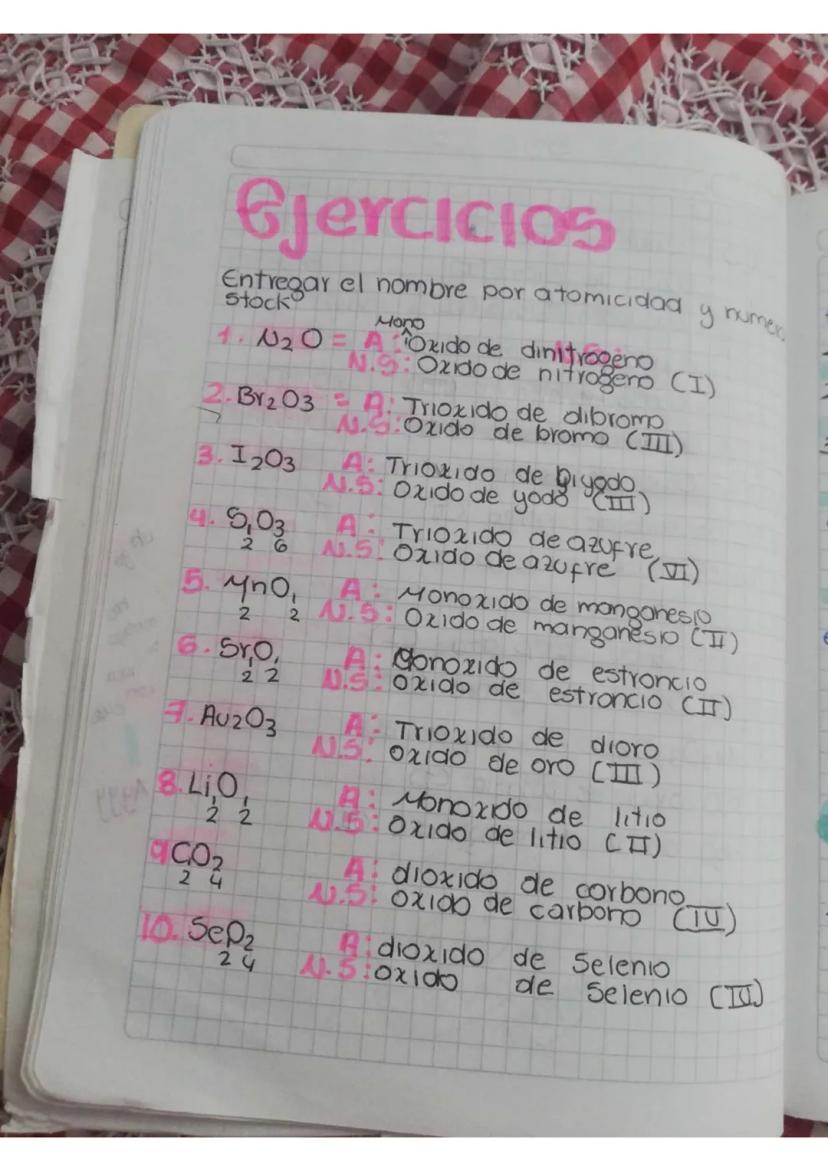 Ejercicios
Entregar el nombre por atomicidad y numer
Stock
Mono
1. N2O = A: Oxido de dinitrogeno
N.S: Oxido de nitrogeno (I)
2. Br2O3 = A: Trioxido de dibromo
N.S: Oxido de bromo (III)
3. I2O3 A: Trioxido de diyodo
N.S: Oxido de yodo (III)
4. S1O3 A: Trioxido de azufre
2 6 N.S: Oxido de azufre (VI)
5. MnO1 A: Monoxido de manganesio
2 2 N.S: Oxido de manganesio (II)
6. Sr1O1 A: Monoxido de estroncio
2 2 N.S: Oxido de estroncio (II)
7. Au2O3 A: Trioxido de dioro
N.S: Oxido de oro (III)
8. Li1O1 A: Monoxido de litio
2 2 N.S: Oxido de litio (II)
9 CO2 A: dioxido de corbono
2 4 N.S: Oxido de carbono (IV)
10. SeO2 A: dioxido de selenio
2 4 N.S: oxido de selenio (IV)